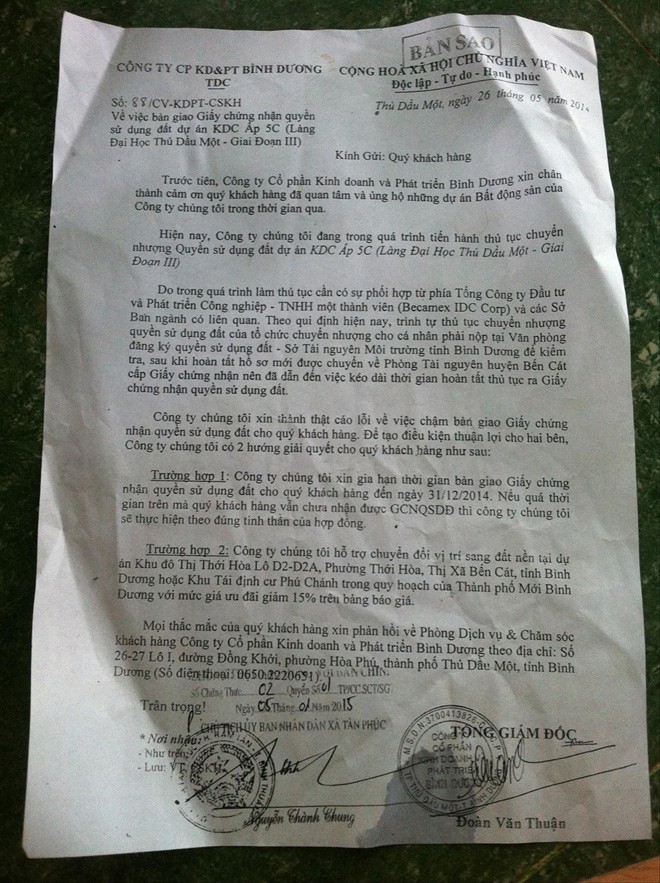 BẢN SAO
CÔNG TY CP KD&PT BÌNH DƯƠNG
TDC
CỘNG HOÀ XÃ HỘI CHỦ NGHĨA VIỆT NAM
Độc lập - Tự do - Hạnh phúc
Số: 88/CV-KDPT-CSKH
Thủ Dầu Một, ngày 26 tháng 05 năm 2014
Về việc bàn giao Giấy chứng nhận quyền
sử dụng đất dự án KDC Ấp 5C (Làng
Đại Học Thủ Dầu Một - Giai Đoạn III)
Kính Gửi: Quý khách hàng
Trước tiên, Công ty Cổ phần Kinh doanh và Phát triển Bình Dương xin chân
thành cảm ơn quý khách hàng đã quan tâm và ủng hộ những dự án Bất động sản của
Công ty chúng tôi trong thời gian qua.
Hiện nay, Công ty chúng tôi đang trong quá trình tiến hành thủ tục chuyển
nhượng Quyền sử dụng đất dự án KDC Ấp 5C (Làng Đại Học Thủ Dầu Một - Giai
Đoạn III)
Do trong quá trình làm thủ tục cần có sự phối hợp từ phía Tổng Công ty Đầu tư
và Phát triển Công nghiệp - TNHH một thành viên (Becamex IDC Corp) và các Sở
Ban ngành có liên quan. Theo qui định hiện nay, trình tự thủ tục chuyển nhượng
quyền sử dụng đất của tổ chức chuyển nhượng cho cá nhân phải nộp tại Văn phòng
đăng ký quyền sử dụng đất - Sở Tài nguyên Môi trường tỉnh Bình Dương để kiểm
tra, sau khi hoàn tất hồ sơ mới được chuyển về Phòng Tài nguyên huyện Bến Cát
cấp Giấy chứng nhận nên đã dẫn đến việc kéo dài thời gian hoàn tất thủ tục ra Giấy
chứng nhận quyền sử dụng đất.
Công ty chúng tôi xin thành thật cáo lỗi về việc chậm bàn giao Giấy chứng
nhận quyền sử dụng đất cho quý khách hàng. Để tạo điều kiện thuận lợi cho hai bên,
Công ty chúng tôi có 2 hướng giải quyết cho quý khách hàng như sau:
Trường hợp 1: Công ty chúng tôi xin gia hạn thời gian bàn giao Giấy chứng
nhận quyền sử dụng đất cho quý khách hàng đến ngày 31/12/2014. Nếu quá thời
gian trên mà quý khách hàng vẫn chưa nhận được GCNQSDĐ thì công ty chúng tôi
sẽ thực hiện theo đúng tinh thần của hợp đồng.
Trường hợp 2: Công ty chúng tôi hỗ trợ chuyển đổi vị trí sang đất nền tại dự
án Khu đô Thị Thới Hòa Lô D2-D2A, Phường Thới Hòa, Thị Xã Bến Cát, tỉnh Bình
Dương hoặc Khu Tái định cư Phú Chánh trong quy hoạch của Thành phố Mới Bình
Dương với mức giá ưu đãi giảm 15% trên bảng báo giá.
Mọi thắc mắc của quý khách hàng xin phản hồi về Phòng Dịch vụ & Chăm sóc
khách hàng Công ty Cổ phần Kinh doanh và Phát triển Bình Dương theo địa chỉ: Số
26-27 Lô I, đường Đồng Khởi, phường Hòa Phú, thành phố Thủ Dầu Một, tỉnh Bình
Dương (Số điện thoại: 0650.2220691)
Số Chứng Thực 02 Quyển Số 01 TP/CC.SCT/SGT
Trân trọng!
Ngày 05 Tháng 01 Năm 2015
CHỦ TỊCH ỦY BAN NHÂN DÂN XÃ TÂN PHÚC
TỔNG GIÁM ĐỐC
* Nơi nhận:
- Như trên
- Lưu: VT
M.S.D.N: 3700413826
CÔNG TY
CỔ PHẦN
KINH DOANH
PHÁT TRIỂN
BÌNH DƯƠNG
TP THỦ DẦU MỘT - T. BÌNH DƯƠNG
Nguyễn Thành Chung
Đoàn Văn Thuận